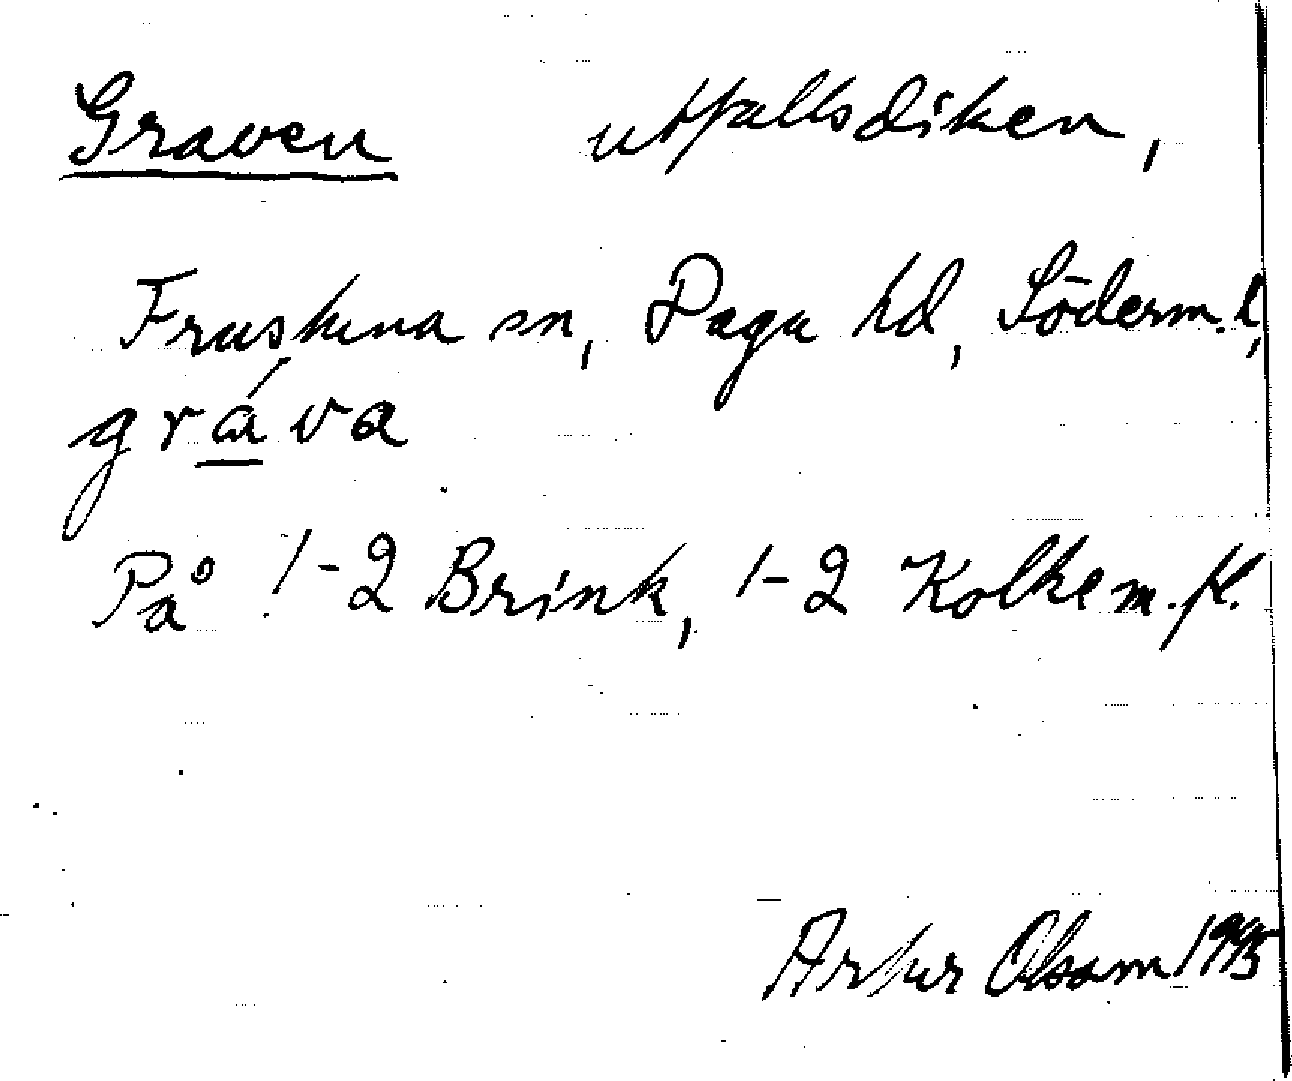 Graven utfallsdiken,
Frustuna sn, Daga hd, Söderm. l,
gráva
På 1-2 Brink, 1-2 Kolke m.fl.
Artur Olsson 1995